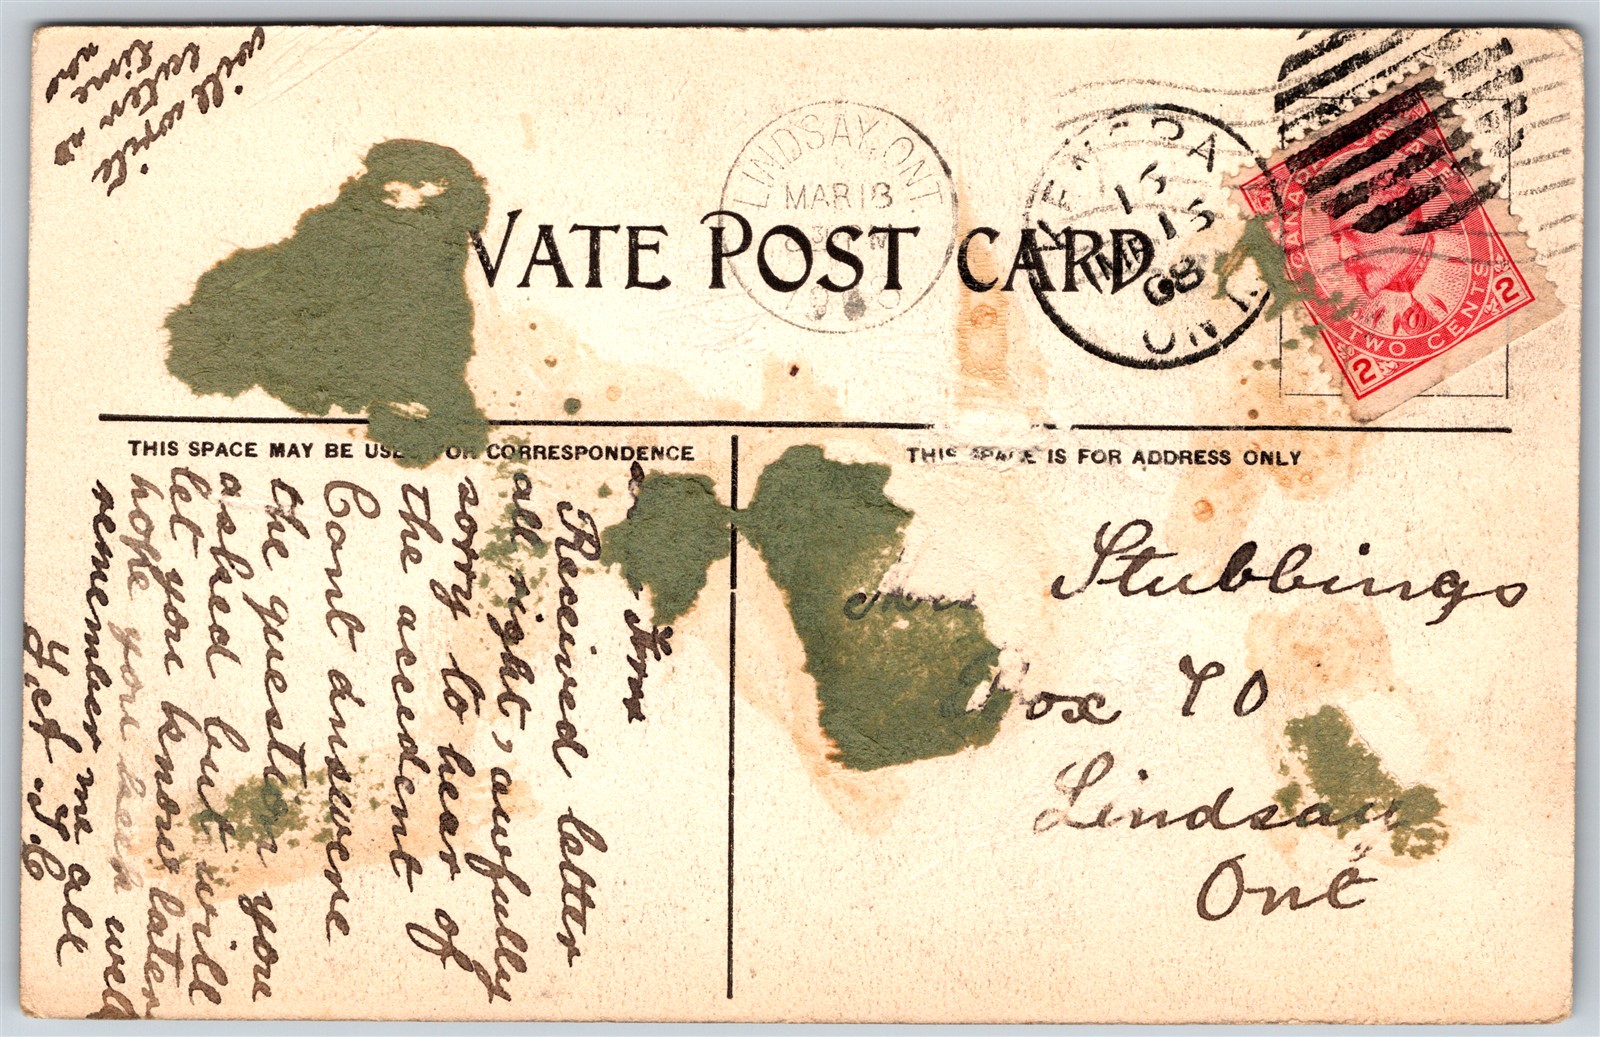 VATE POST CARD
LINDSAY, ONT
MAR 13
KENORA
13
MR 13
08
ONT
CANADA POSTAGE
TWO CENTS
2 2
THIS SPACE MAY BE USE OR CORRESPONDENCE
THIS SPACE IS FOR ADDRESS ONLY
Stubbings
Box 70
Lindsay
Ont
Received letter
all right, awfully
sorry to hear of
the accident
Cont answere
the question you
asked but will
let you know later
hope you keep well
remember me all
will write
later no
time
now